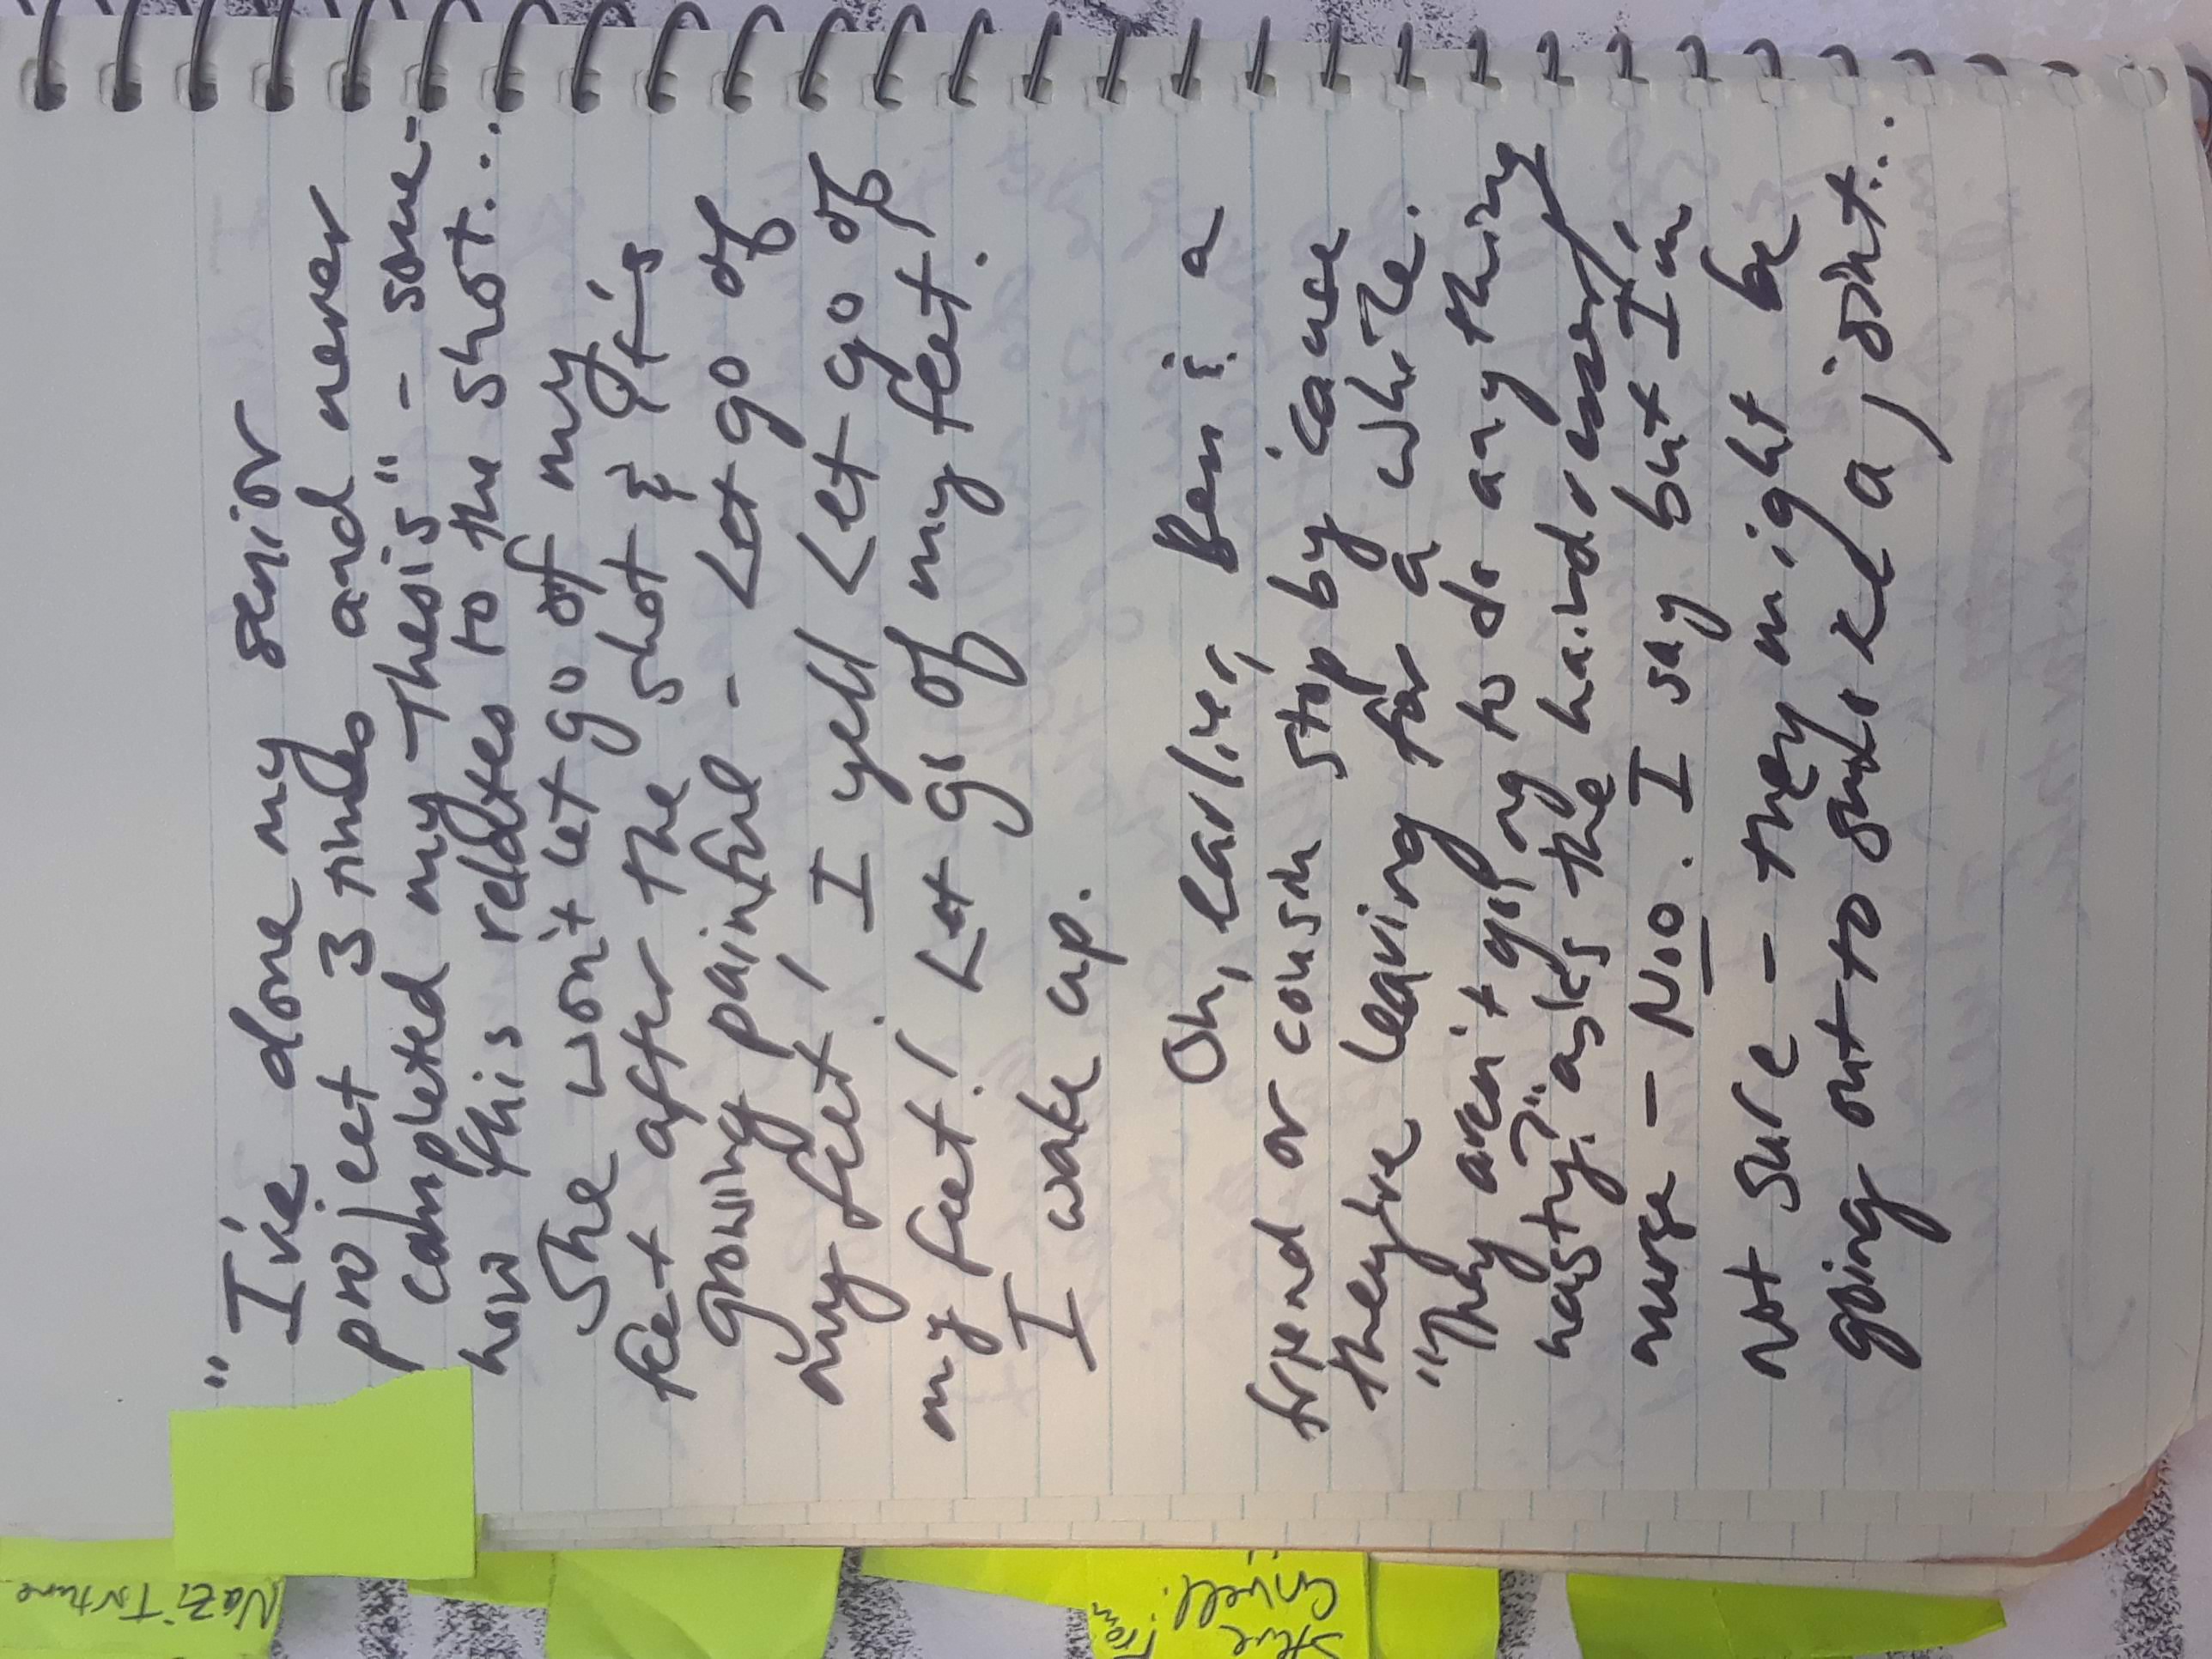 "I've done my senior
project 3 times and never
completed my thesis" - some-
how this relates to the shot...
She won't let go of my
feet after the shot & it's
growing painful - Let go of
my feet! I yell Let go of
my feet! Let go of my feet.
I wake up.
Oh, earlier, Ben & a
friend or cousin stop by cause
they're leaving for a while.
"They aren't going to do anything
nasty?" asks the hairdresser/
nurse - No. I say but I'm
not sure - they might be
going out to smoke a joint...
Nazi Torture
Steve
Covell:
From